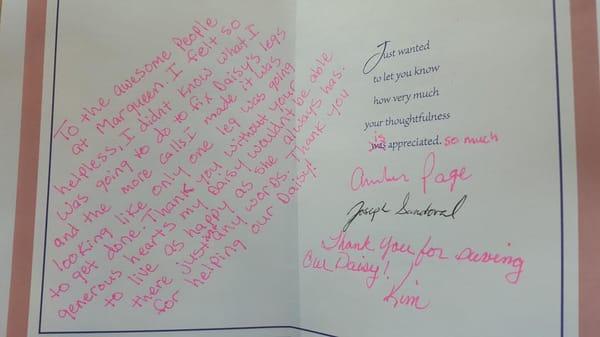 To the awesome people
at Marqueen. I felt so
helpless, I didnt know what I
was going to do to fix Daisy's legs
and the more calls I made it was
looking like only one leg was going
to get done. Thank you without your
generous hearts my Daisy wouldn't be able
to live as happy as she always has.
there just isn't any words. Thank you
for helping our Daisy!
Just wanted
to let you know
how very much
your thoughtfulness
is appreciated. so much
Amber Page
Joseph Sandoval
Thank you for saving
Our Daisy!
Kim